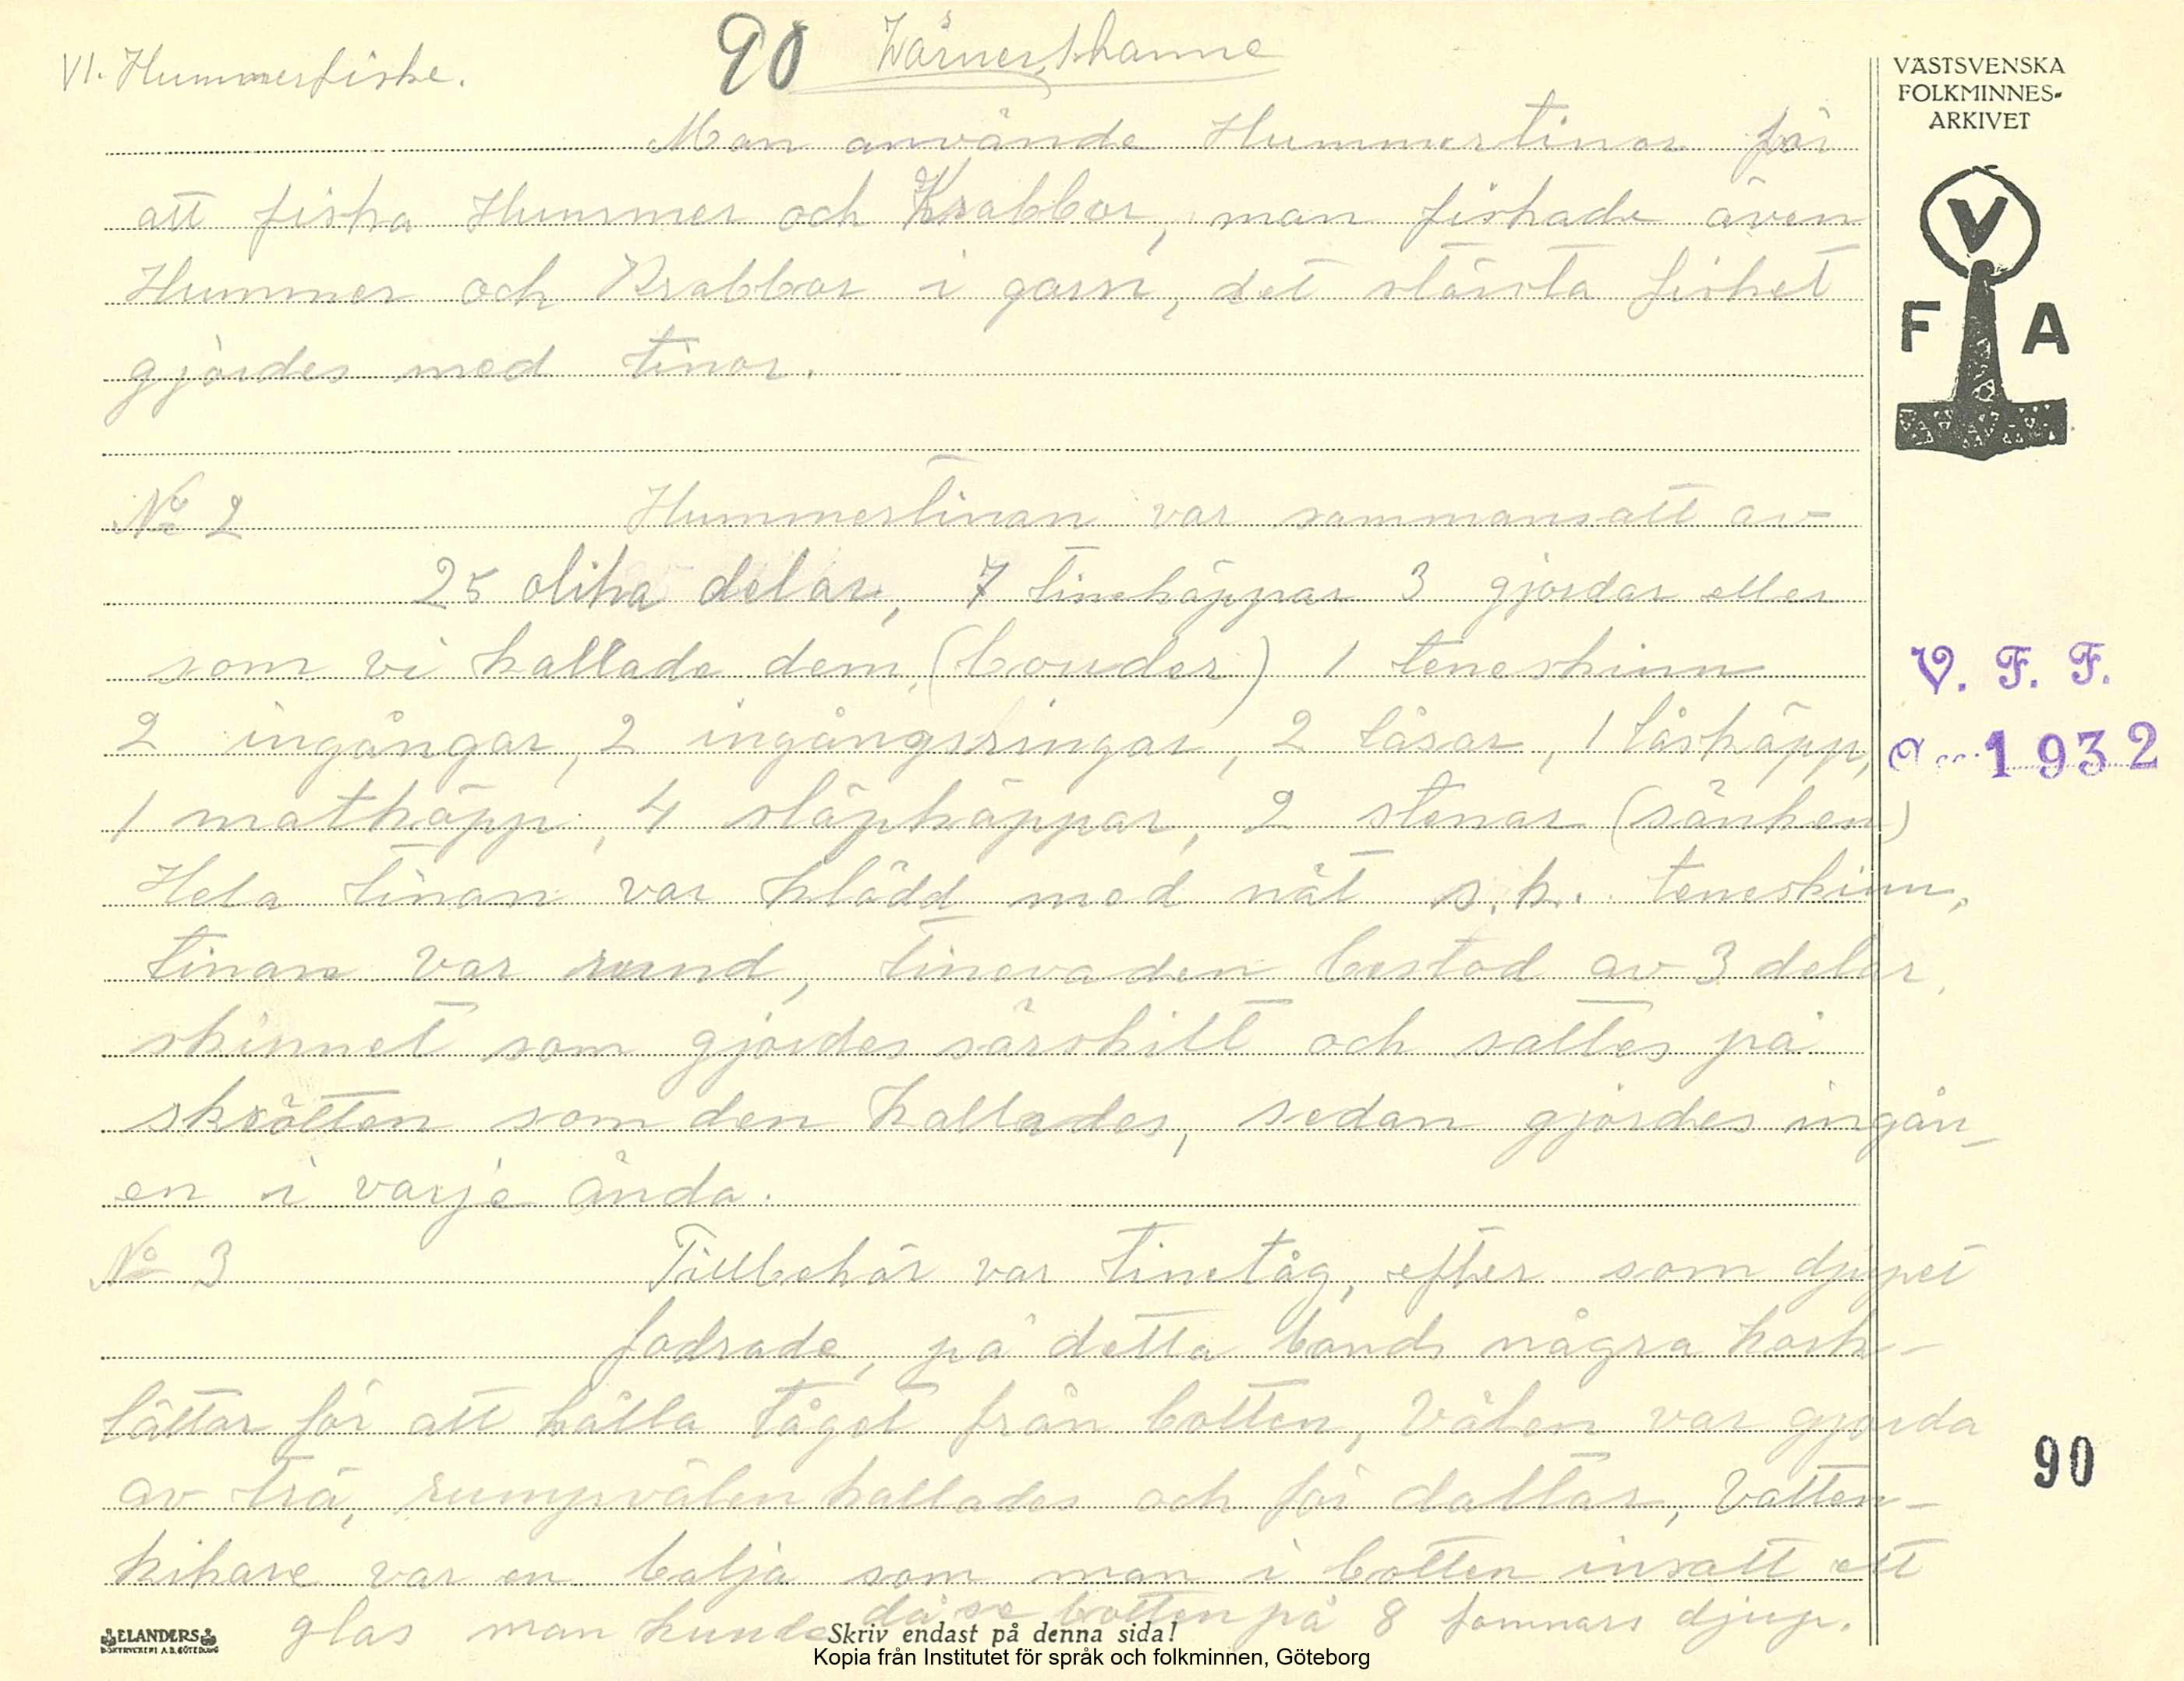 VI. Hummerfiske.
90
Wärner, Hanne
VÄSTSVENSKA
FOLKMINNES-
ARKIVET
V
F A
Man använde Hummertinor för
att fiska Hummer och Krabbor, man fiskade även
Hummer och Krabbor i garn, det största fisket
gjordes med tinor.
No 2 Hummertinan var sammansatt av
25 olika delar, 7 tinekäppar 3 gjordar eller
som vi kallade dem, (bouder) 1 teneskinn
2 ingångar, 2 ingångsringar, 2 låsar, 1 låskäpp,
V. F. F.
1932
1 matkäpp, 4 släpkäppar, 2 stenar (sänken)
Hela tinan var klädd med nät s.k. teneskinn,
tinan var rund, tinevaden bestod av 3 delar,
skinnet som gjordes särskilt och sattes på
skrötten som den kallades, sedan gjordes ingån
en i varje ända.
No 3 Tillbehör var tinetåg, efter som djupet
fodrade, på detta bands några kork-
lättar för att hålla tåget från botten, Vålen var gjorda
av trä, rumpvålen kallades och för dallar, Vatten-
kikare var en balja som man i botten insatt ett
glas man kunde då se botten på 8 famnars djup.
90
ELANDERS
BOKTRYCKERI A.B. GÖTEBORG
Skriv endast på denna sida!
Kopia från Institutet för språk och folkminnen, Göteborg